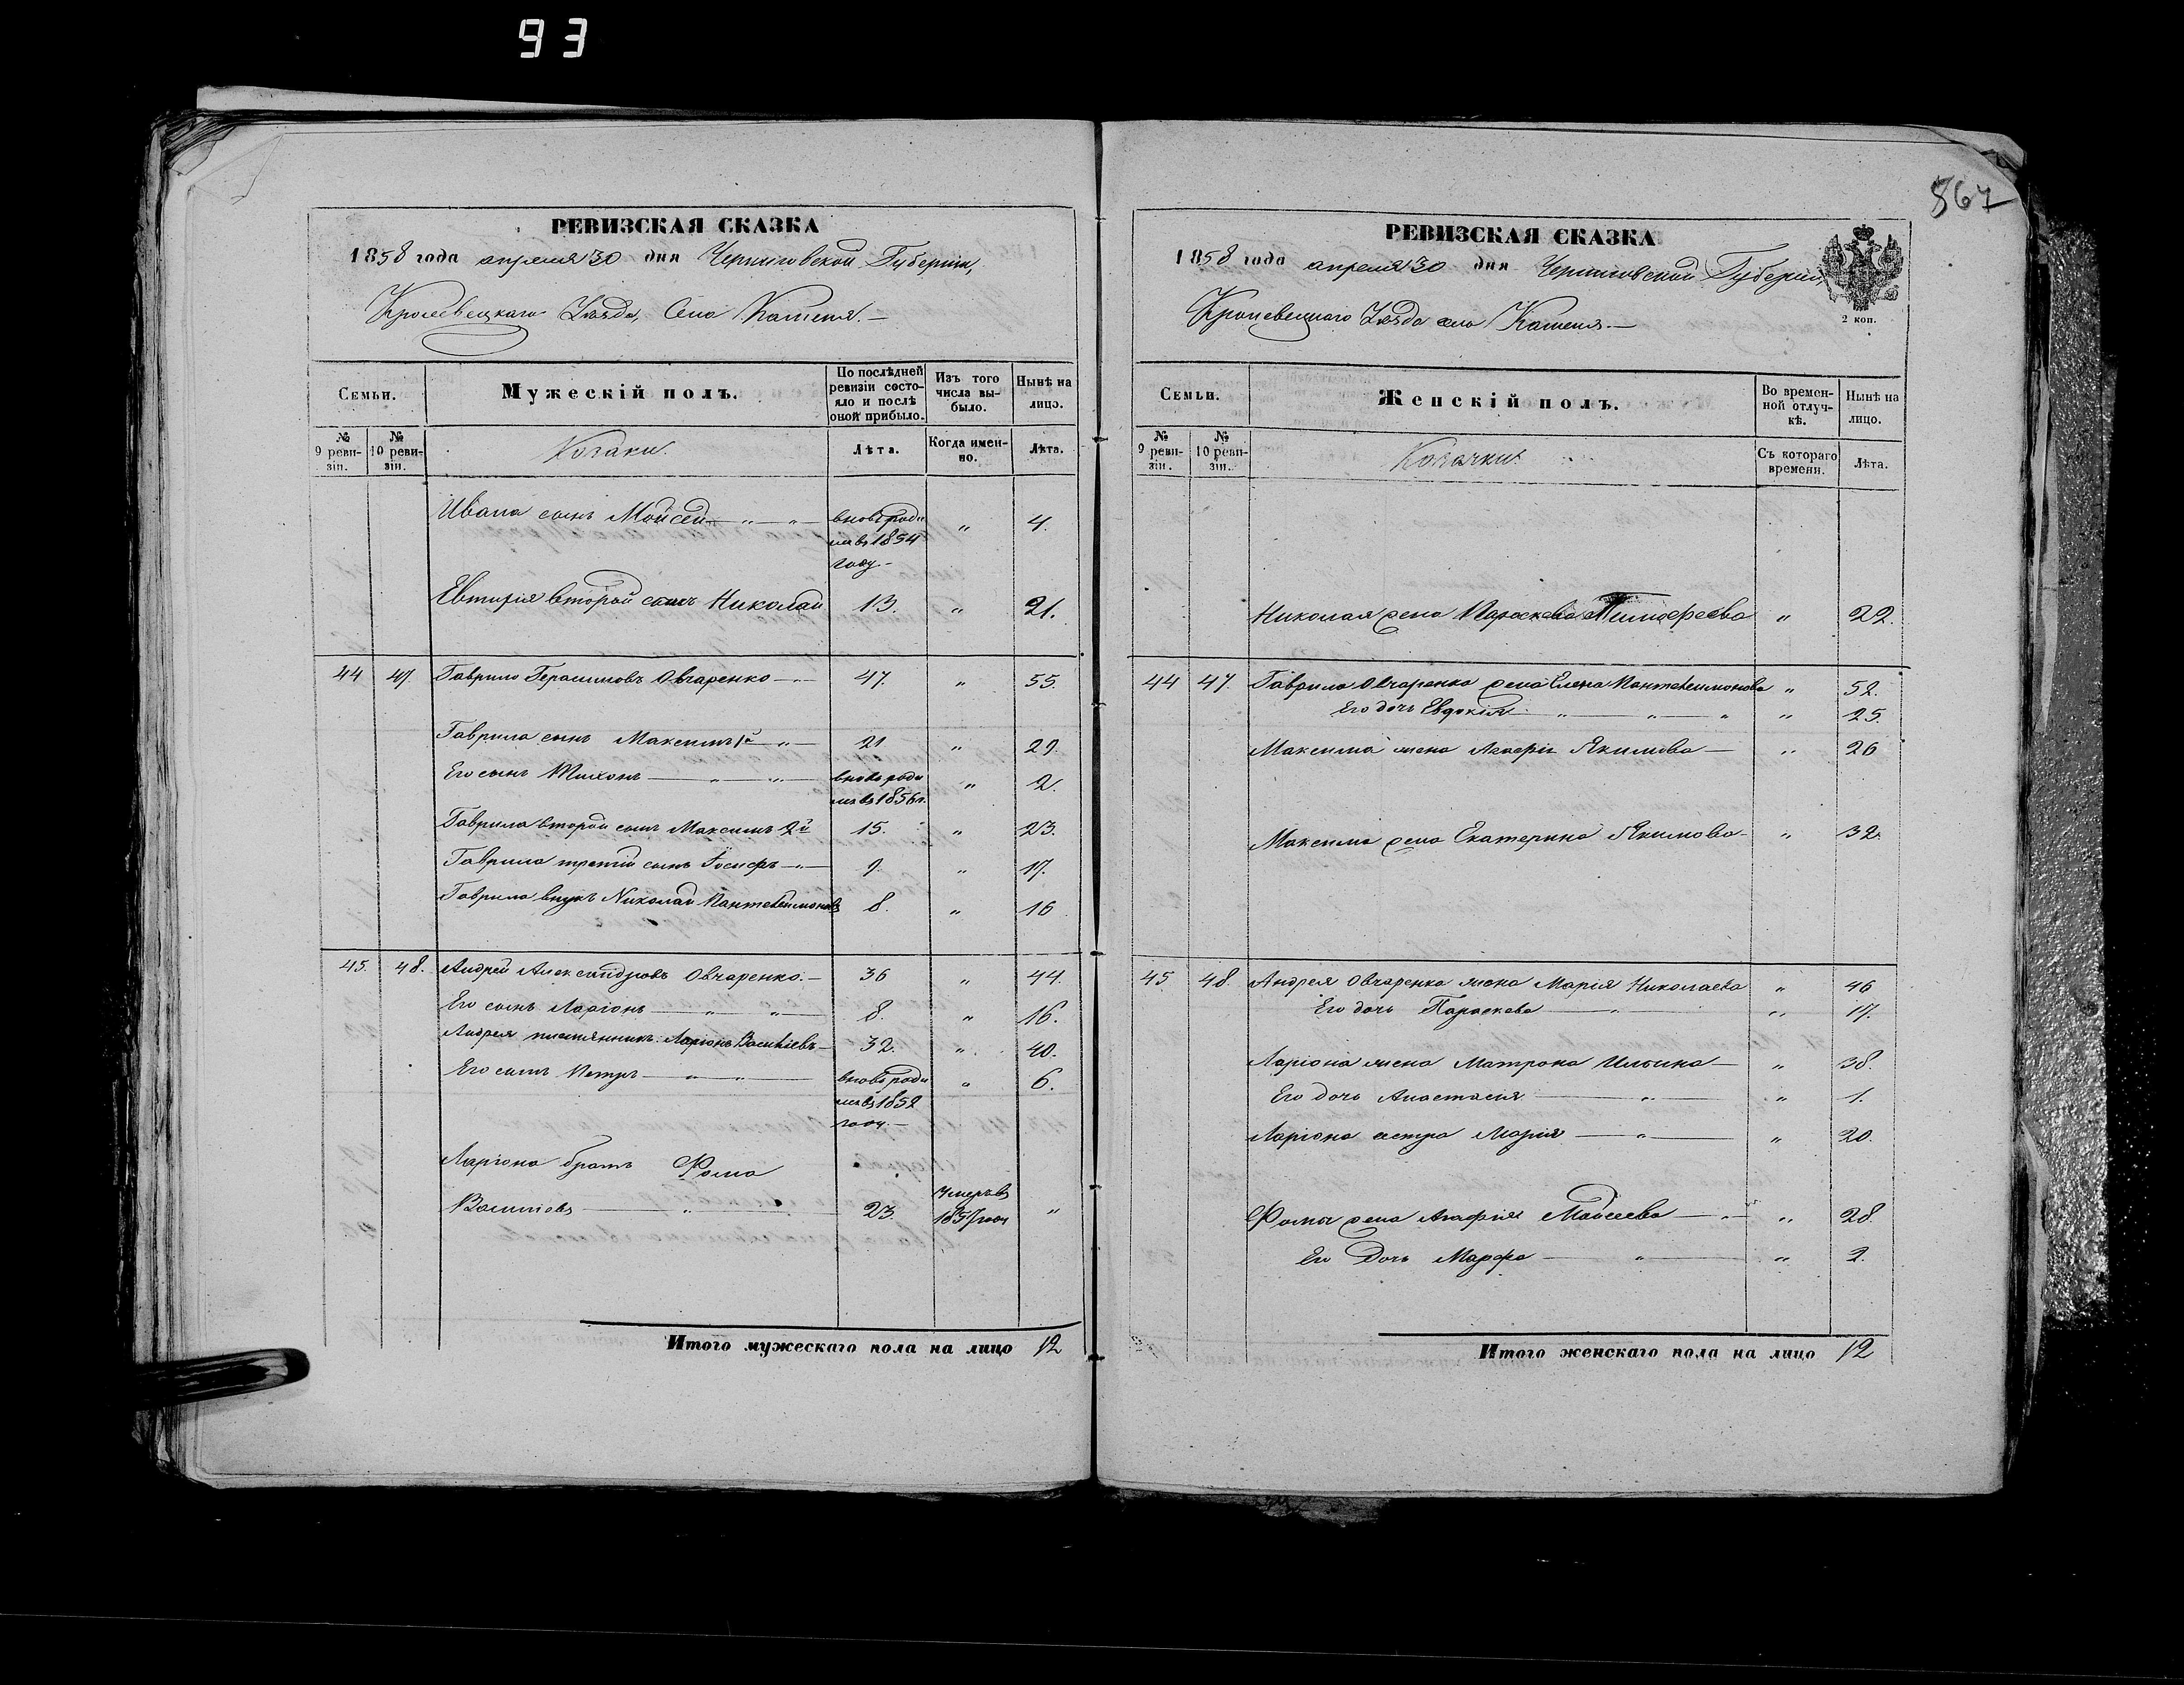 93
567
РЕВИЗСКАЯ СКАЗКА
1858 года апреля 30 дня Черниговской Губерніи,
Кролевецкаго Уѣзда, Села Каменя.—
Семьи.
Мужескій полъ.
По послѣдней ревизіи состояло и послѣ оной прибыло.
Изъ того числа выбыло.
Нынѣ на лицо.
№ 9 ревизіи.
№ 10 ревизіи.
Козаки.
Лѣта.
Когда именно.
Лѣта.
Ивана сынъ Мойсей — " — " — вновь роди " 4.
лся въ 1854
году.—
Евтихія второй сынъ Николай 13. " 21.
44 47 Гаврило Герасимовъ Овчаренко — 47 " 55.
Гаврила сынъ Максимъ 1й — " — 21 " 29.
Его сынъ Тихонъ — " — " — вновь роди " 2.
лся въ 1856 г.
Гаврила второй сынъ Максимъ 2й 15. " 23.
Гаврила третій сынъ Іосифъ — " — 9. " 17.
Гаврила внукъ Николай Пантелеимоновъ 8. " 16
45. 48. Андрей Александровъ Овчаренко.— 36 " 44.
Его сынъ Ларіонъ — " — " — 8. " 16.
Андрея племянникъ Ларіонъ Васильевъ — 32. " 40.
Его сынъ Петръ — " — " — вновь роди " 6.
лся въ 1852
году.—
Ларіона братъ Фома
Васильевъ — " — 23. Умеръ въ 1857 году "
Итого мужескаго пола на лицо 12
РЕВИЗСКАЯ СКАЗКА
1858 года апреля 30 дня Черниговской Губерніи,
Кролевецкаго Уѣзда село Каменя.—
2 коп.
Семьи.
Женскій полъ.
Во временной отлучкѣ.
Нынѣ на лицо.
№ 9 ревизіи.
№ 10 ревизіи.
Козачки.
Съ котораго времени.
Лѣта.
Николая жена Параскева Тимофеева " 22.
44 47. Гаврила Овчаренка жена Елена Пантелеимонова " 52.
Его дочь Евдокія — " — " — " " 25.
Максима жена Агафія Якимова — " 26
Максима жена Екатерина Якимова — " 32.
45 48. Андрея Овчаренка жена Марія Николаева " 46
Его дочь Параскева — " — " 17.
Ларіона жена Матрона Ильина — " 38.
Его дочь Анастасія — " — " 1.
Ларіона сестра Марія — " — " 20.
Фомы жена Агафія Мойсеева — " — " 28.
Его Дочь Марфа — " — " 2.
Итого женскаго пола на лицо 12